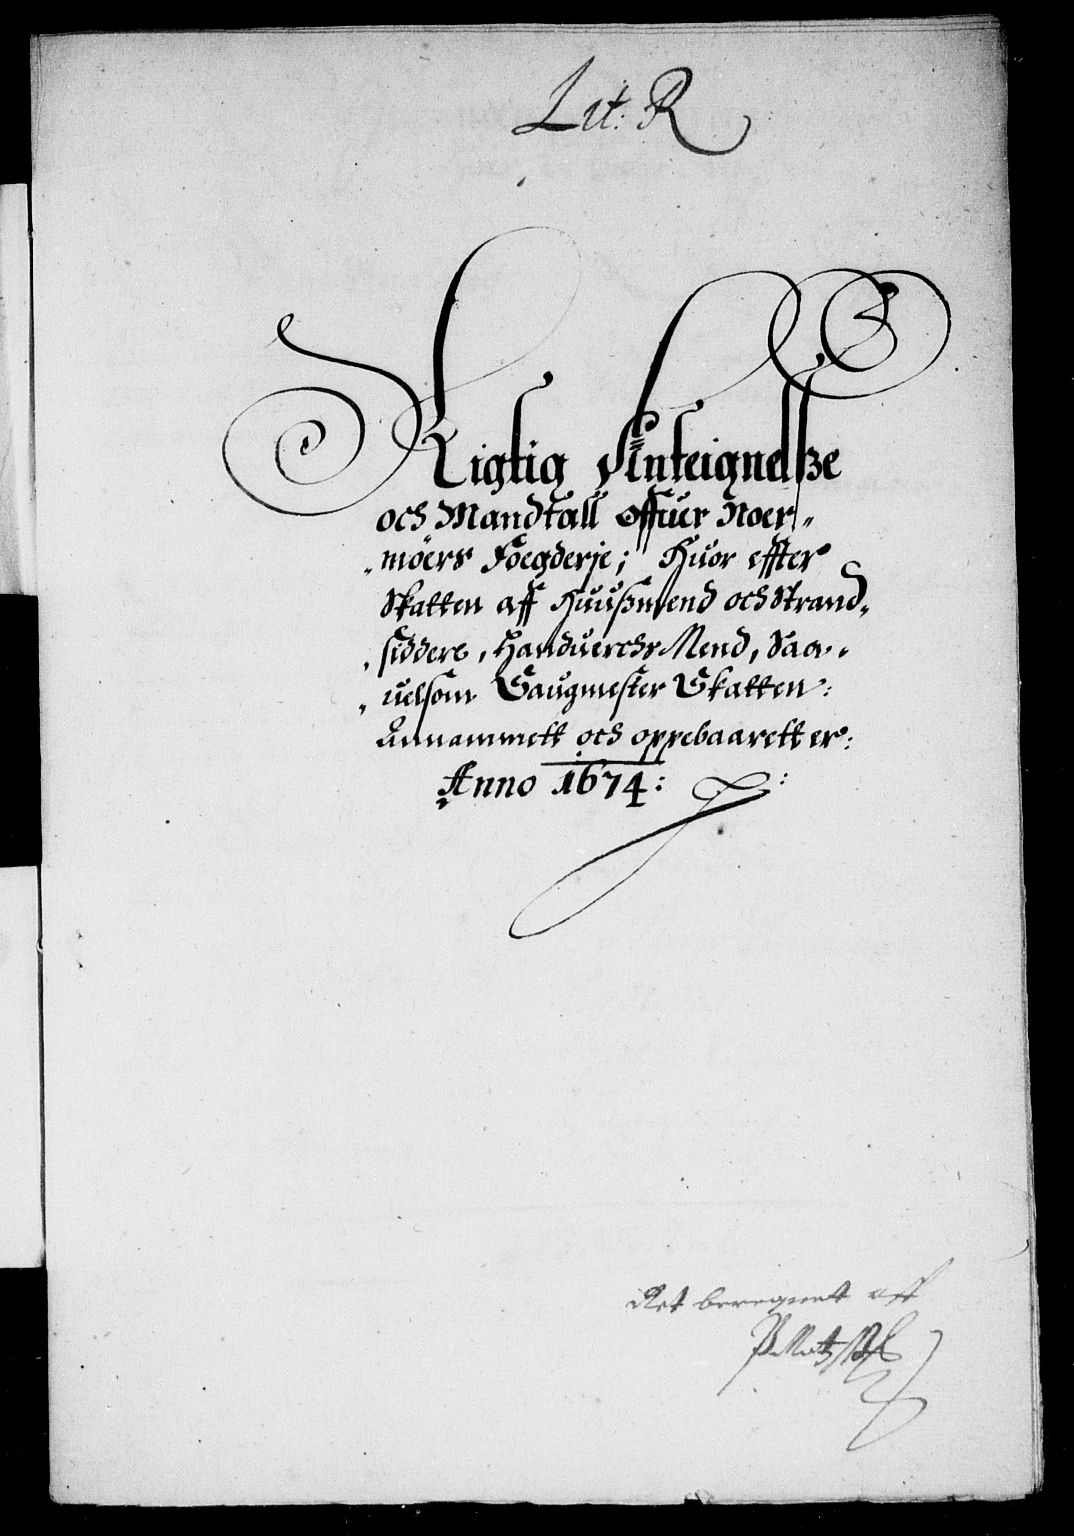 Lit: R
Rigtig Anteignelsze
och Mandtall offuer Noer„
„möers Foegderje; Huor effter
Skatten aff Huuszmend och Strand„
„siddere, Handuerchs Mend, Saa„
„uelsom Saugmester Skatten:
Annammett och oppebaarett er:
Anno 1674:
Ret beregnett aff